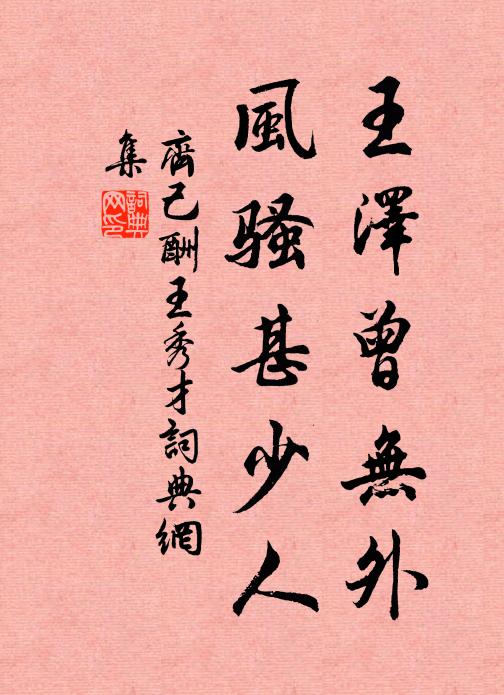 王澤曾無外
風騷甚少人
齊己酬王秀才詞典網
集
詞典
网印